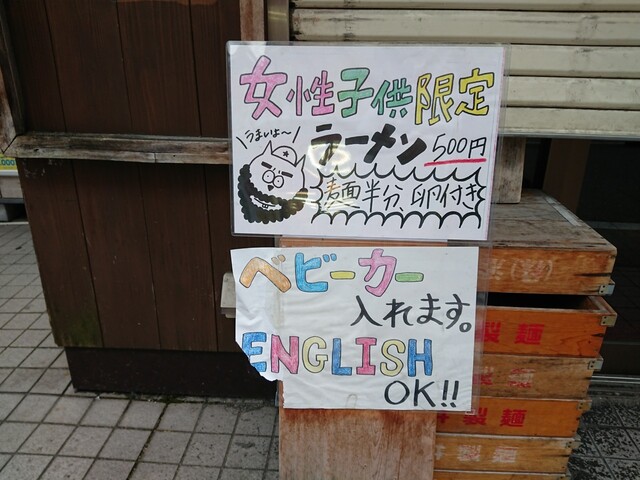 女性子供限定
\うまいよ〜/
ラーメン 500円
麺半分、卵付き
ベビーカー
入れます。
ENGLISH
OK!!
製麺
製麺
製麺
製麺